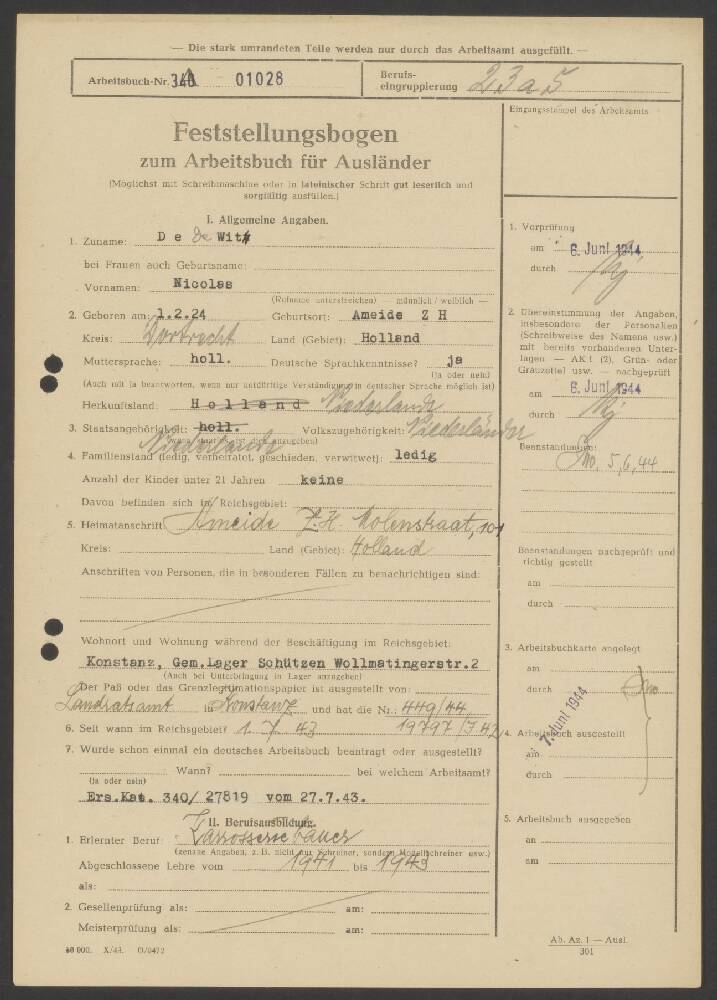 — Die stark umrandeten Teile werden nur durch das Arbeitsamt ausgefüllt. —
Arbeitsbuch-Nr. 340 A 01028
Berufs-
eingruppierung 23 a 5
Eingangsstempel des Arbeitsamts
Feststellungsbogen
zum Arbeitsbuch für Ausländer
(Möglichst mit Schreibmaschine oder in lateinischer Schrift gut leserlich und
sorgfältig ausfüllen.)
I. Allgemeine Angaben.
1. Zuname: De de Witt
bei Frauen auch Geburtsname:
Vornamen: Nicolas
(Rufname unterstreichen) — männlich / weiblich —
2. Geboren am: 1.2.24 Geburtsort: Ameide Z H
Kreis: Dortrecht Land (Gebiet): Holland
Muttersprache: holl. Deutsche Sprachkenntnisse? ja
(ja oder nein)
(Auch mit ja beantworten, wenn nur notdürftige Verständigung in deutscher Sprache möglich ist)
Herkunftsland: Holland Niederlande
3. Staatsangehörigkeit: holl. Volkszugehörigkeit: Niederländer
Niederlande
(wenn staatenlos ist dies anzugeben)
4. Familienstand (ledig, verheiratet, geschieden, verwitwet): ledig
Anzahl der Kinder unter 21 Jahren keine
Davon befinden sich im Reichsgebiet:
5. Heimatanschrift: Ameide Z.H. Molenstraat, 101
Kreis: Land (Gebiet): Holland
Anschriften von Personen, die in besonderen Fällen zu benachrichtigen sind:
Wohnort und Wohnung während der Beschäftigung im Reichsgebiet:
Konstanz, Gem.Lager Schützen Wollmatingerstr.2
(Auch bei Unterbringung in Lager anzugeben)
Der Paß oder das Grenzlegitimationspapier ist ausgestellt von:
Landratsamt in Konstanz und hat die Nr.: 449/44
6. Seit wann im Reichsgebiet? 1. 7. 43 19797/742
7. Wurde schon einmal ein deutsches Arbeitsbuch beantragt oder ausgestellt?
Wann? bei welchem Arbeitsamt?
(ja oder nein)
Ers.Kat. 340/ 27819 vom 27.7.43.
II. Berufsausbildung.
1. Erlernter Beruf: Karrosseriebauer
(genaue Angaben, z. B. nicht nur Schreiner, sondern Modellschreiner usw.)
Abgeschlossene Lehre vom 1941 bis 1943
als:
2. Gesellenprüfung als: am:
Meisterprüfung als: am:
X/43. O/0472
1. Vorprüfung
am 6. Juni 1944
durch
2. Übereinstimmung der Angaben,
insbesondere der Personalien
(Schreibweise des Namens usw.)
mit bereits vorhandenen Unter-
lagen — AK 1 (2), Grün- oder
Grauzettel usw. — nachgeprüft
am 6. Juni 1944
durch
Beanstandungen:
5.6.44
Beanstandungen nachgeprüft und
richtig gestellt
am
durch
3. Arbeitsbuchkarte angelegt
am
durch
7. Juni 1944
4. Arbeitsbuch ausgestellt
am
durch
5. Arbeitsbuch ausgegeben
an
am
Ab. Az. 1 — Ausl.
301